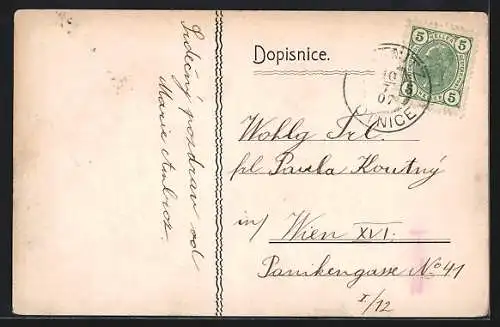 Srdečný pozdrav od
Marie
Dopisnice.
5 HELLER 5
5 5
10
07
NICE
Wohlg Frl.
Paula Koutný
in/ Wien XVI.
Panikengasse No 41
I/12